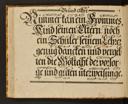 Nimmer kan ein Frommes
Kind seinen Eltern noch
ein Schüler seinem Lehrer
genug dancken und vergel
ten die Wolthat der vorsor
ge und guten unterweisunge.